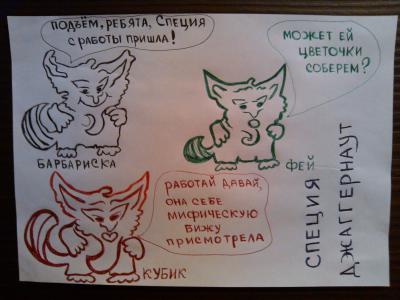 ПОДЪЁМ, РЕБЯТА, СПЕЦИЯ
С РАБОТЫ ПРИШЛА!
БАРБАРИСКА
МОЖЕТ ЕЙ
ЦВЕТОЧКИ
СОБЕРЕМ?
ФЕЙ
РАБОТАЙ ДАВАЙ,
ОНА СЕБЕ
МИФИЧЕСКУЮ
БИЖУ
ПРИСМОТРЕЛА
КУБИК
СПЕЦИЯ
ДЖАГГЕРНАУТ